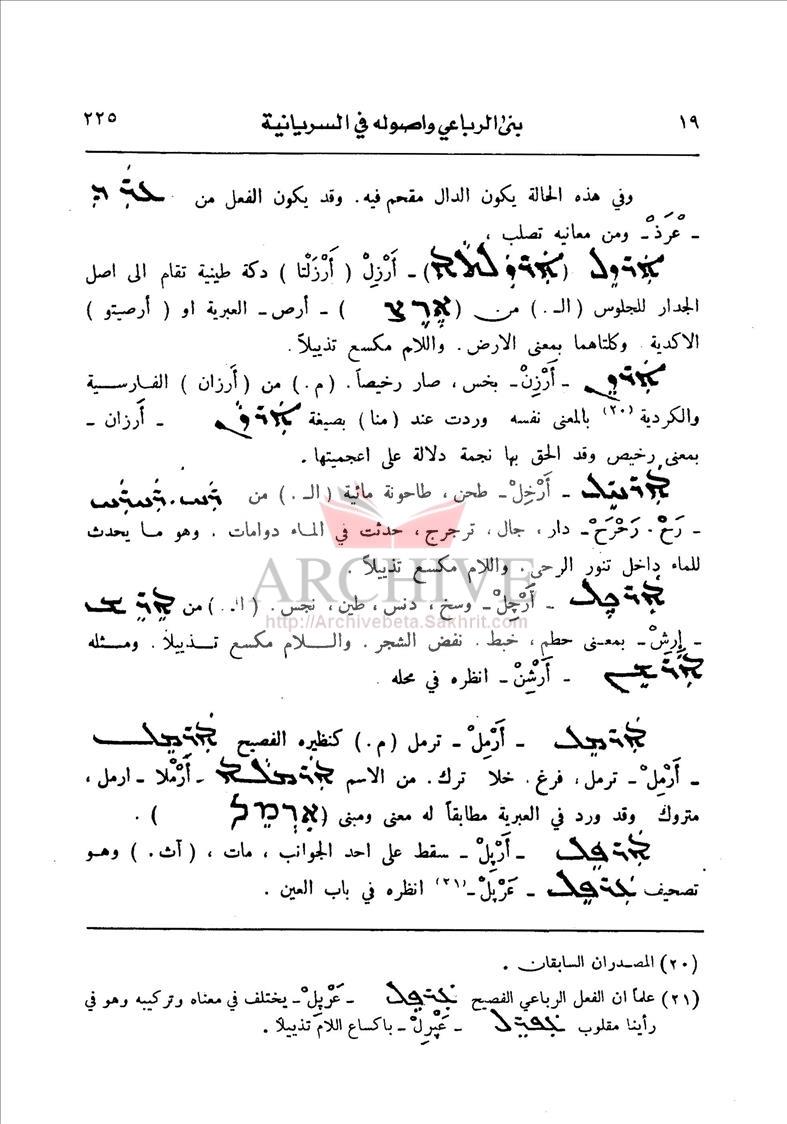 ١٩ بنى الرباعي واصوله في السريانية ٢٢٥
وفي هذه الحالة يكون الدال مقحم فيه. وقد يكون الفعل من
ـ عْرَذْ ـ ومن معانيه تصلب ،
ـ أَرْزِلْ ( أَرْزَلْتا ) دكة طينية تقام الى اصل
الجدار للجلوس ( الـ . ) من ( ) ـ أرص ـ العبرية او ( أرصيتو )
الاكدية . وكلتاهما بمعنى الارض . واللام مكسع تذييلاً .
ـ أَرْزِنْ ـ بخس ، صار رخيصاً . ( م . ) من ( أرزان ) الفارسية
والكردية (٢٠) بالمعنى نفسه وردت عند ( منا ) بصيغة ـ أرزان ـ
بمعنى رخيص وقد الحق بها نجمة دلالة على اعجميتها .
ـ أَرْخِلْ ـ طحن ، طاحونة مائية ( الـ . ) من
ـ رَحْ . رَحْرَحْ ـ دار ، جال ، ترجرج ، حدثت في الماء دوامات . وهو ما يحدث
للماء داخل تنور الرحى . واللام مكسع تذييلاً .
ARCHIVE
ـ أَرْچِلْ ـ وسخ ، دنس ، طين ، نجس . ( الـ . ) من
http://Archivebeta.Sakhrit.com
ـ إِرِشْ ـ بمعنى حطم ، خبط . نفض الشجر . واللام مكسع تذييلاً . ومثله
ـ أَرْشِنْ ـ انظره في محله
ـ أَرْمِلْ ـ ترمل ( م . ) كنظيره الفصيح
ـ أَرْمِلْ ـ ترمل ، فرغ . خلا ترك . من الاسم ـ أَرْمْلا ـ ارمل ،
متروك وقد ورد في العبرية مطابقاً له معنى ومبنى ( ) .
ـ أَرْپِلْ ـ سقط على احد الجوانب ، مات ، ( آث . ) وهو
تصحيف ـ عَرْپِلْ ـ (٢١) انظره في باب العين .
(٢٠) المصدران السابقان .
(٢١) علماً ان الفعل الرباعي الفصيح ـ عَرْپِلْ ـ يختلف في معناه وتركيبه وهو في
رأينا مقلوب ـ عَپْرِلْ ـ باكساع اللام تذييلاً .